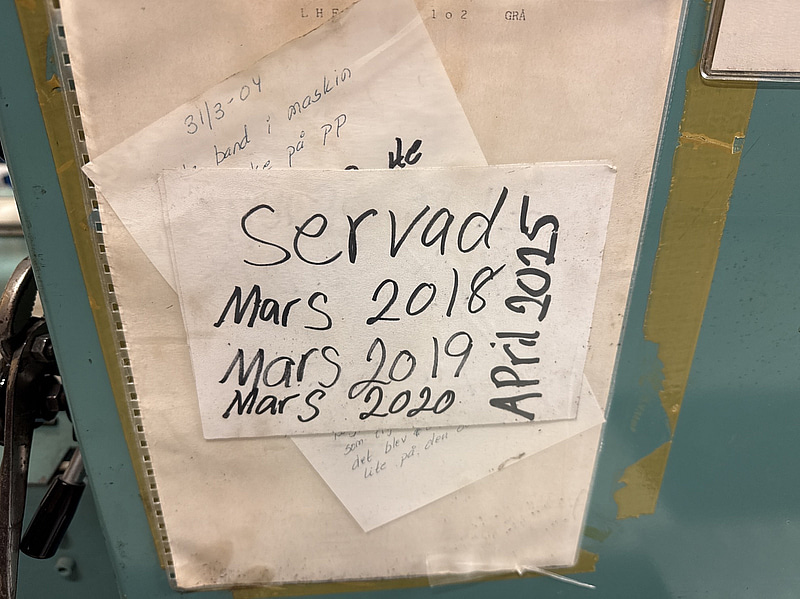 GRÅ
31/3-04
band i maskin
på PP
Servad
Mars 2018
Mars 2019
Mars 2020
April 2025
som
det blev
lite på den